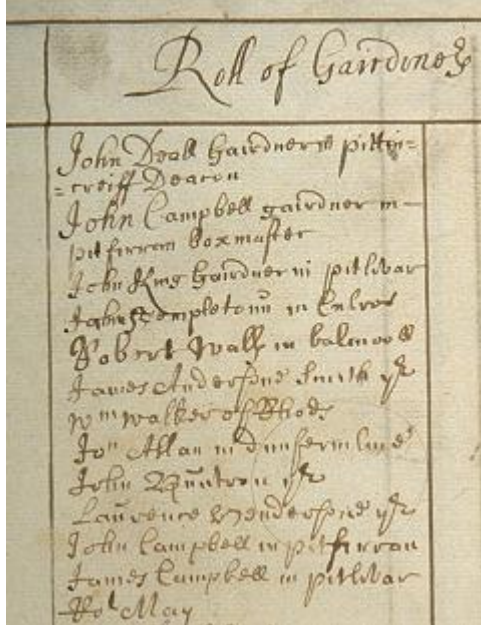 Roll of Gairdners
John Deall Gairdner in pittin=
=creiff Deacon
John Campbell gairdner in
pitfirran boxmaster
John King Gairdner in pitlivar
Templetoun in Culros
Robert Wals in balmool
James Andersone Smith yr
Wm walker of Rhods
Jon Allan in dunfermline
John yr
Laurence Hendersone yr
John Campbell in pitfirran
James Campbell in pitlivar
Rot May